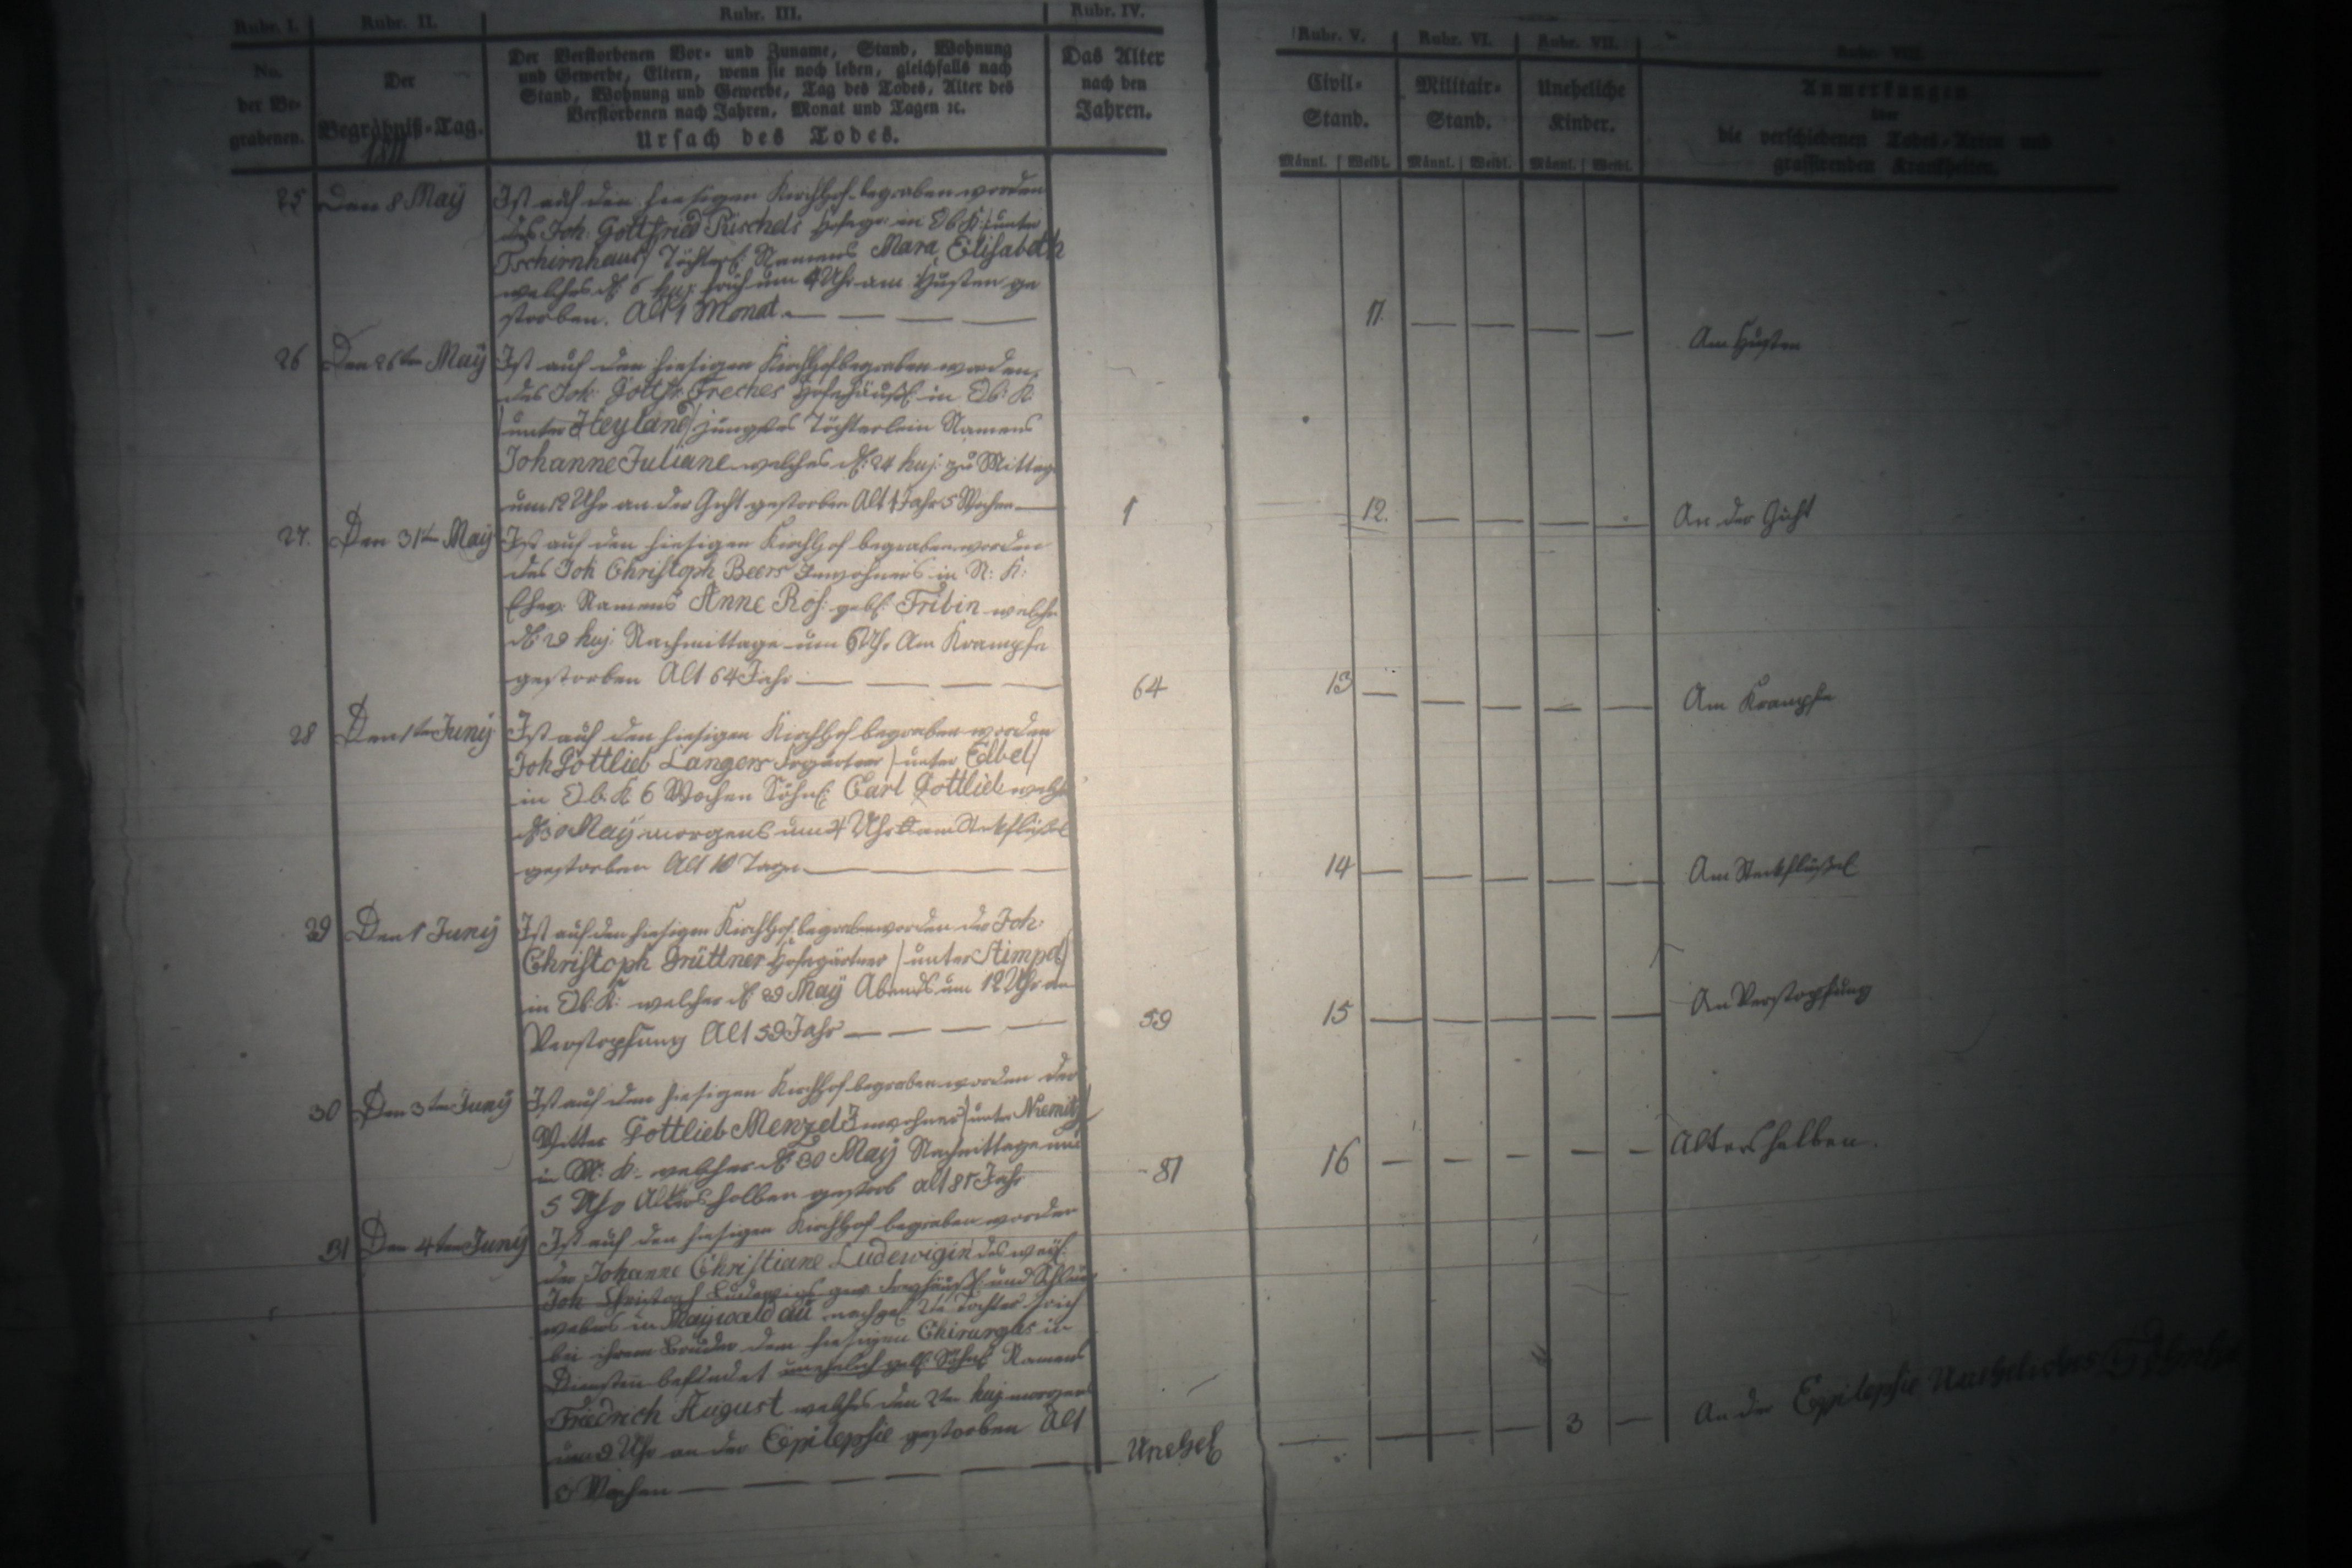 Rubr. I. Rubr. II. Rubr. III. Rubr. IV. Rubr. V. Rubr. VI. Rubr. VII. Rubr. VIII.
No. der Be-
grabenen.
Der
Begräbniß-Tag.
1811
Der Verstorbenen Vor- und Zuname, Stand, Wohnung
und Gewerbe, Eltern, wenn sie noch leben, gleichfalls nach
Stand, Wohnung und Gewerbe, Tag des Todes, Alter des
Verstorbenen nach Jahren, Monat und Tagen ꝛc.
Ursach des Todes.
Das Alter
nach den
Jahren.
Civil-
Stand.
Männl. Weibl.
Militair-
Stand.
Männl. Weibl.
Uneheliche
Kinder.
Männl. Weibl.
Anmerkungen
über
die verschiedenen Todes-Arten und
grassirenden Krankheiten.
25 Den 8 Maÿ Ist auf den hiesigen Kirchhof begraben worden
des Joh: Gottfried Püschels Hofegr: in Ob: K: /unter
Tschirnhaus/ Töchterl: Namens Mara Elisabeth
welches d: 6 huj: früh um 4 Uhr am Husten ge
storben. Alt 1 Monat. 11. Am Husten
26 Den 26ten Maÿ Ist auf den hiesigen Kirchhof begraben worden,
des Joh: Gottfr: Freches Hofehäusl: in Ob: K:
/unter Heyland/ jüngstes Töchterlein Namens
Johanne Juliane welches d: 24 huj: zu Mittag
um 12 Uhr an der Gicht gestorben Alt 1 Jahr 5 Wochen 1 12. An der Gicht
27. Den 31ten Maÿ Ist auf den hiesigen Kirchhof begraben worden
des Joh Christoph Beers Inwohners in N: K:
Ehew: Namens Anne Ros: geb: Fribin welche
d: 29 huj: Nachmittage um 6 Uhr Am Krampfe
gestorben Alt 64 Jahr 64 13 Am Krampfe
28 Den 1ten Junÿ Ist auf den hiesigen Kirchhof begraben worden
Joh Gottlieb Langers Frgärtner /unter Elbel/
in Ob. K. 6 Wochen Söhnl: Carl Gottlieb welch
d: 30 Maÿ morgens um 4 Uhr am Steckflüßel
gestorben Alt 10 Tage 14 Am Steckflüßel
29 Den 1 Junÿ Ist auf den hiesigen Kirchhof begraben worden der Joh:
Christoph Grüttner Hofegärtner /unter Stimpel/
in Ob: K: welcher d: 29 Maÿ Abends um 12 Uhr an
Verstopfung Alt 59 Jahr 59 15 An Verstopfung
30 Den 3ten Junÿ Ist auf den hiesigen Kirchhof begraben worden der
Witwer Gottlieb Menzel Inwohner /unter Niemitz/
in N: K: welcher d: 30 Maÿ Nachmittage um
5 Uhr Altershalben gestorb alt 81 Jahr 81 16 Altershalben.
31 Den 4ten Junÿ Ist auf den hiesigen Kirchhof begraben worden
der Johanne Christiane Ludewigin des weyl:
Joh Christoph Ludewigs gew. Freyhäusl: und
webers in Maywaldau nachgel 2te Tochter sich
bei ihrem Bruder dem hiesigen Chirurgus in
Diensten befindet unehelich geb: Söhnl: Namens
Friedrich August welches den 2ten huj: morgens
um 9 Uhr an der Epilepsie gestorben Alt
3 Wochen Unehel 3 An der Epilepsie Uneheliches Söhnlein